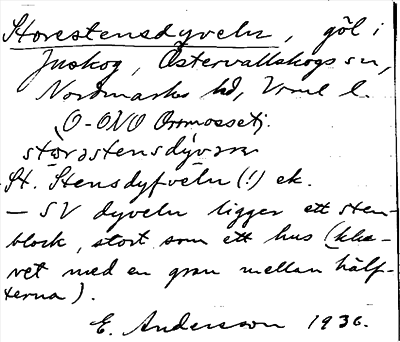 Storestensdyveln, göl i
Juskog, Östervallskogs sn,
Nordmarks hd, Vrml l.
O-ONO Ormmossetj.
stɷrəstensdy̆vəɳ
St. Stensdyfveln (!) ek.
– SV dyveln ligger ett sten-
block, stort som ett hus (klu-
vet med en gran mellan hälf-
terna).
E. Andersson 1936.